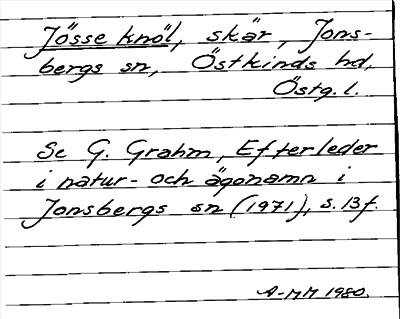 Jösse knöl, skär, Jons-
bergs sn, Östkinds hd,
Östg. l.
Se G. Grahm, Efterleder
i natur- och ägonamn i
Jonsbergs sn (1971), s. 13f.
A-MM 1980.